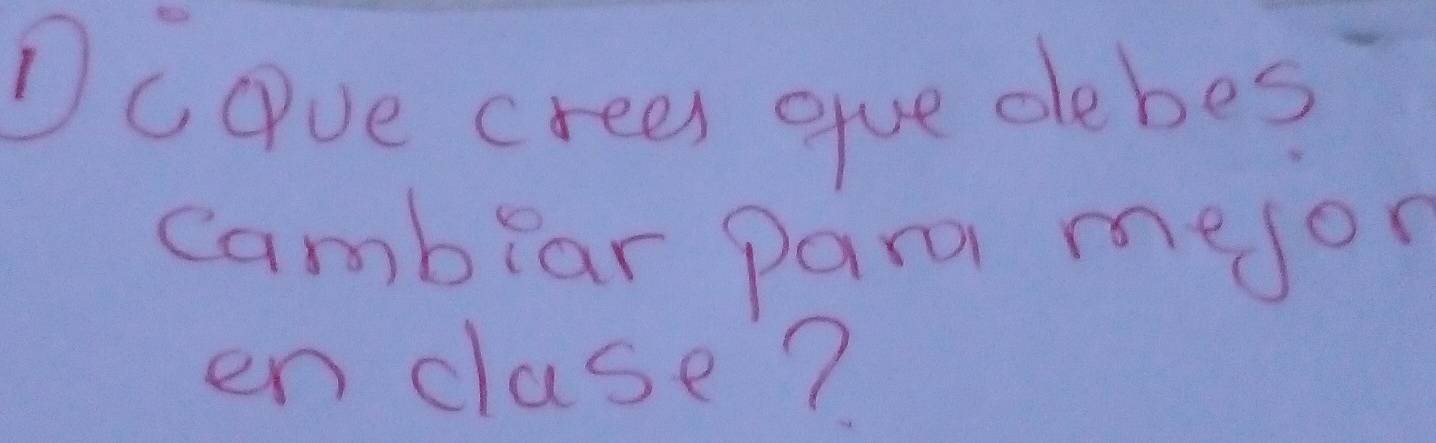 1) ¿Que crees que debes
cambiar para mejor
en clase?